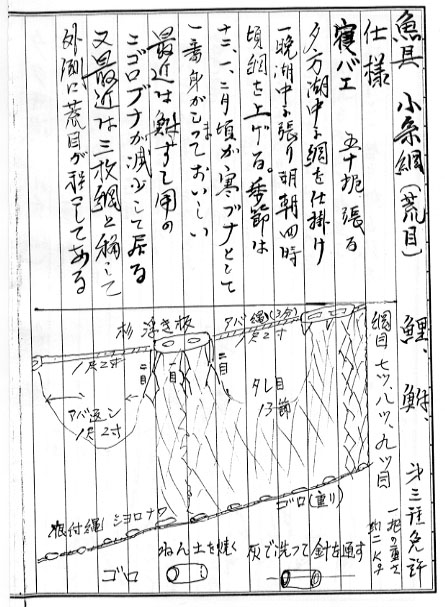 魚具 小糸網(荒目) 鯉、鮒、 第三種免許
仕様
網目 七ツ、八ツ、九ツ目
寝バエ 五十把張る
夕方湖中に網を仕掛け
一晩湖中に張り朝四時
頃網を上げる。季節は
十二、一、二月頃が寒ブナとして
一番身がしまっておいしい
最近は鮒ずし用の
ニゴロブナが減少して居る
又最近は三枚網と称して
外側に荒目が程してある
杉 浮き板
アバ縄(3分)
1尺2寸
1尺2寸
一目
二目
二目
タレ目
13節
アバ返シ
1尺2寸
根付縄 シヨロナワ
ゴロ(重り)
ゴロ
ねん土を焼く 灰で洗って針を通す